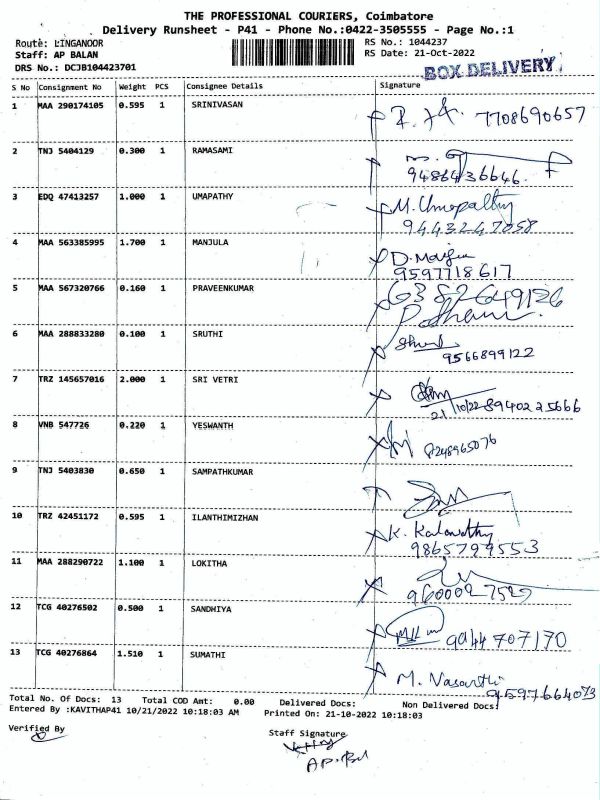 THE PROFESSIONAL COURIERS, Coimbatore
Delivery Runsheet - P41 - Phone No.:0422-3505555 - Page No.:1
Route: LINGANOOR
RS No.: 1044237
Staff: AP BALAN
RS Date: 21-Oct-2022
DRS No.: DCJB104423701
BOX DELIVERY
S No Consignment No Weight PCS Consignee Details Signature
1 MAA 290174105 0.595 1 SRINIVASAN
7708690657
2 TNJ 5404129 0.300 1 RAMASAMI
9486436646.
3 EDQ 47413257 1.000 1 UMAPATHY M. Umapathy
9443247058
4 MAA 563385995 1.700 1 MANJULA
9597718617
5 MAA 567320766 0.160 1 PRAVEENKUMAR 6382649126
6 MAA 288833280 0.100 1 SRUTHI
9566899122
7 TRZ 145657016 2.000 1 SRI VETRI
21/10/22-8940225666
8 VNB 547726 0.220 1 YESWANTH 8248965076
9 TNJ 5403830 0.650 1 SAMPATHKUMAR
10 TRZ 42451172 0.595 1 ILANTHIMIZHAN K. Kalavathy
9865799553
11 MAA 288290722 1.100 1 LOKITHA
9600027527
12 TCG 40276502 0.500 1 SANDHIYA 9944707170
13 TCG 40276864 1.510 1 SUMATHI M. Vasanthi
9597664073
Total No. Of Docs: 13 Total COD Amt: 0.00 Delivered Docs: Non Delivered Docs:
Entered By :KAVITHAP41 10/21/2022 10:18:03 AM Printed On: 21-10-2022 10:18:03
Verified By
Staff Signature